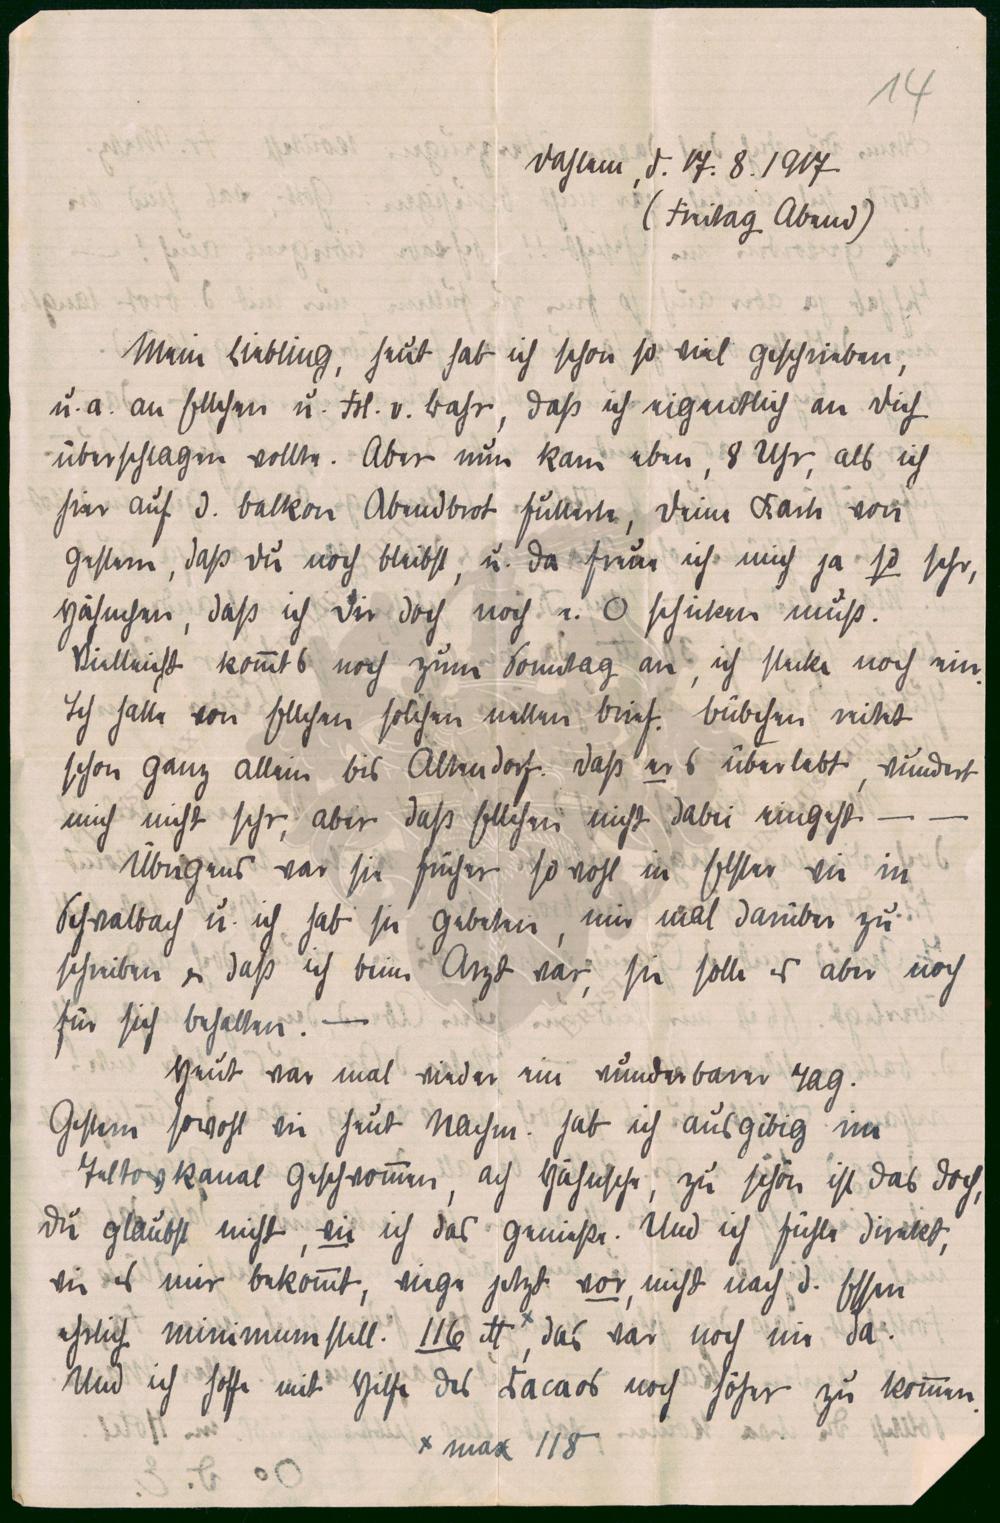 14
Dahlem, d. 17. 8. 1917
(Freitag Abend)
Mein Liebling, heut hab ich schon so viel geschrieben,
u. a. an Ellchen u. Frl. v. Bahr, daß ich eigentlich an Dich
überschlagen wollte. Aber nun kam eben, 8 Uhr, als ich
hier auf d. Balkon Abendbrot futterte, Deine Karte von
gestern, daß Du noch bleibst, u. da freue ich mich ja so sehr,
Hähnchen, daß ich Dir doch noch e. O schicken muß.
Vielleicht kom̅ts noch zum Sonntag an, ich stecke noch ein.
Ich hatte von Ellchen solchen netten Brief. Bübchen reitet
schon ganz allein bis Altendorf. Daß er s überlebt, wundert
mich nicht sehr, aber daß Ellchen nicht dabei eingeht — —
Übrigens war sie früher sowohl in Elster wie in
Schwalbach u. ich hab sie gebeten, mir mal darüber zu
schreiben daß ich beim Arzt war, sie solle es aber noch
für sich behalten. —
Heut war mal wieder ein wunderbarer Tag.
Gestern sowohl wie heut Nachm. hab ich ausgibig im
Teltowkanal geschwom̅en, ach Hähnsche, zu schön ist das doch,
Du glaubst nicht, wie ich das genieße. Und ich fühle direkt,
wie es mir bekom̅t, wiege jetzt vor, nicht nach d. Essen
ehrlich minimumstell. 116 ℔ x, das war noch nie da.
Und ich hoffe mit Hilfe des Kacaos noch höher zu kom̅en.
x max 118